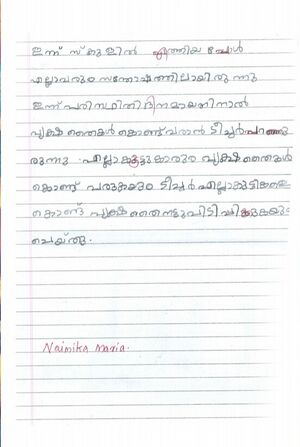 ഇന്ന് സ്കൂളിൽ എത്തിയ പ്പോൾ
എല്ലാവരും സന്തോഷത്തിലായിരു ന്നു
ഇന്ന് പരിസ്ഥിതി ദിനമായതിനാൽ
വൃക്ഷ തൈകൾ കൊണ്ട് വരാൻ ടീച്ചർ പറഞ്ഞു
രുന്നു. എല്ലാകൂട്ടുകാരും വൃക്ഷ തൈകൾ
കൊണ്ട് വരുകയും ടീച്ചർ എല്ലാകുട്ടികളെ
കൊണ്ടു വൃക്ഷ തൈനട്ടുപിടിപ്പിക്കുകയും
ചെയ്തു.
Nainika Maria.